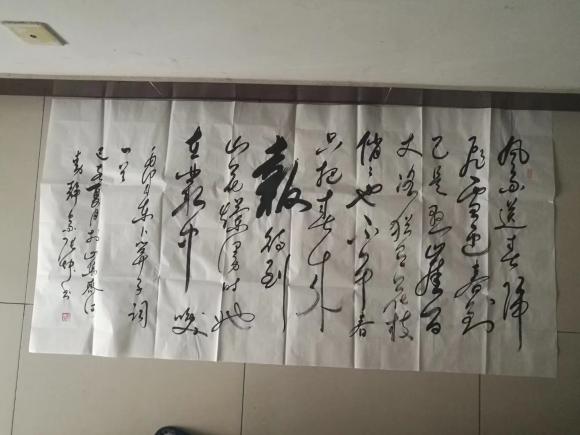 風雨送春歸
飛雪迎春到
已是懸崖百
丈冰猶有花枝
俏俏也不争春
只把春來
報待到
山花爛漫時她
在叢中咲
毛主席卜算子詞
一首
夏月於山東
書